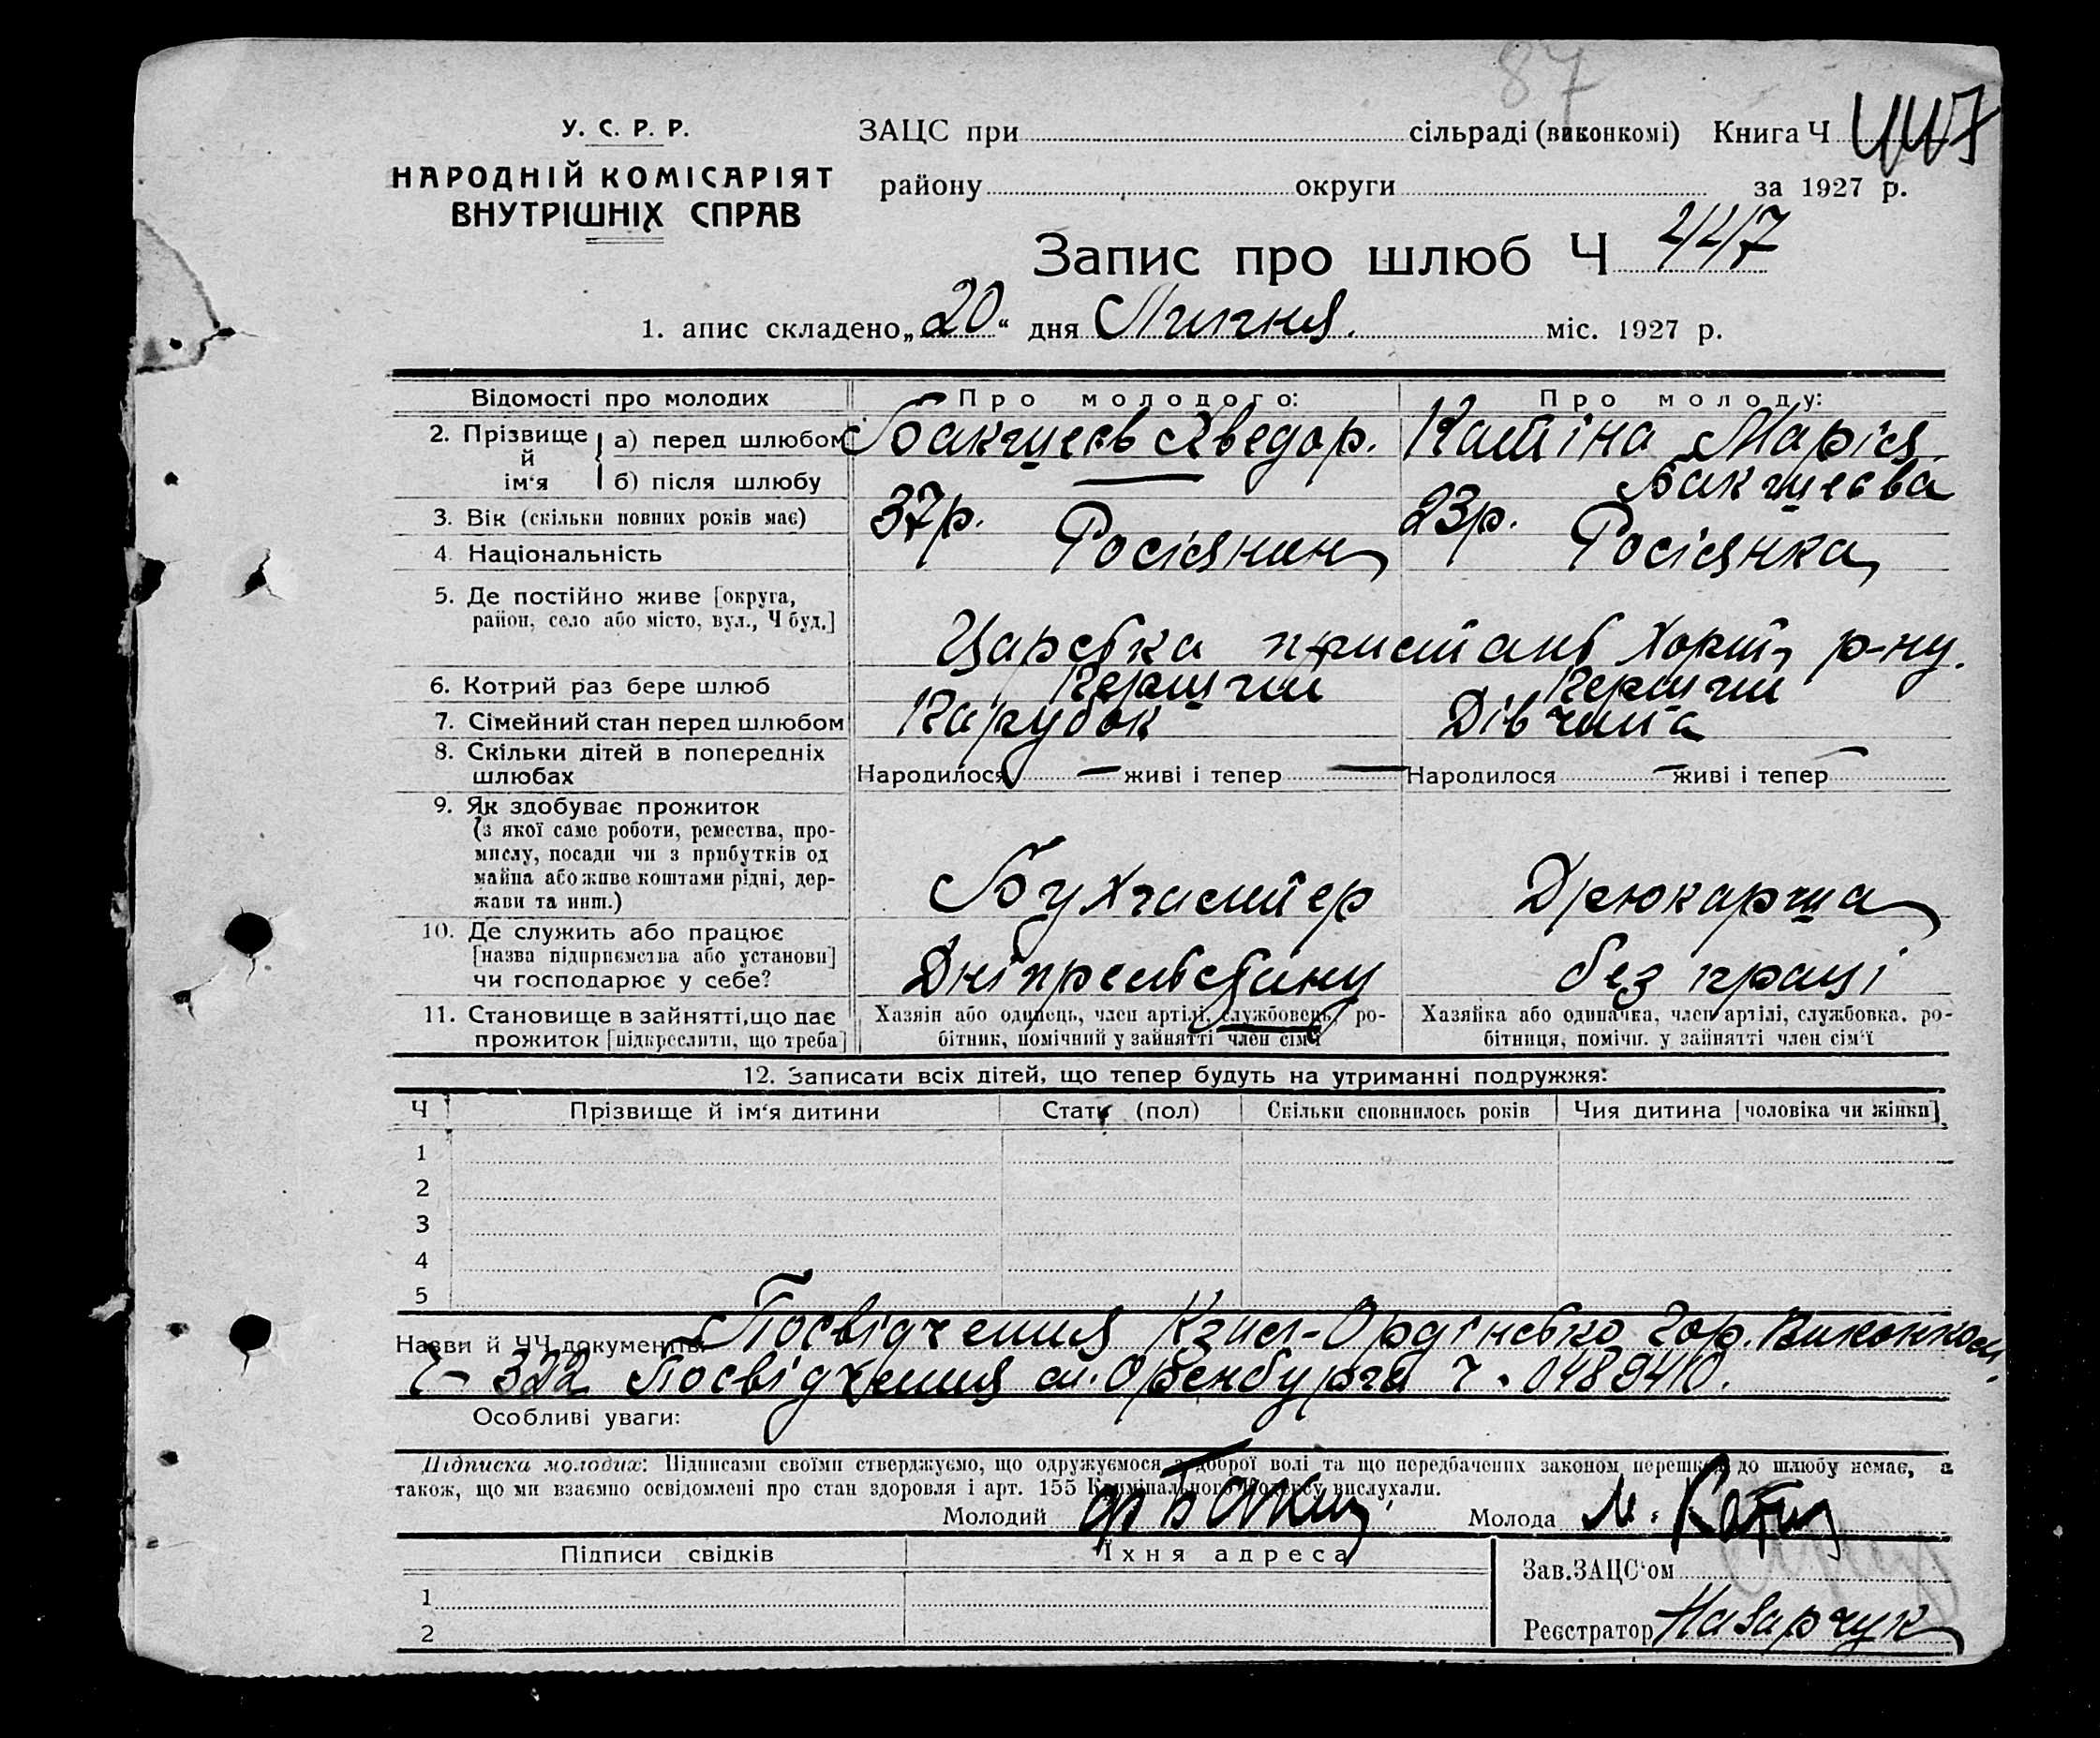 87
У. С. Р. Р.
НАРОДНІЙ КОМІСАРІЯТ
ВНУТРІШНІХ СПРАВ
ЗАЦС при сільраді (виконкомі) Книга Ч 447
району округи за 1927 р.
Запис про шлюб Ч 447
1. апис складено „20“ дня Липня. міс. 1927 р.
Відомості про молодих Про молодого: Про молоду:
2. Прізвище й ім'я а) перед шлюбом Бакшеєв Хведор. Катіна Марія
б) після шлюбу Бакшеєва
3. Вік (скільки повних років має) 37р. 23р.
4. Національність Росіянин Росіянка
5. Де постійно живе [округа,
район, село або місто, вул., Ч буд.]
Царська пристань Хорт, р-ну.
6. Котрий раз бере шлюб Перший Перший
7. Сімейний стан перед шлюбом Парубок Дівчина
8. Скільки дітей в попередніх
шлюбах Народилося — живі і тепер — Народилося — живі і тепер
9. Як здобуває прожиток
(з якої саме роботи, ремества, про-
мислу, посади чи з прибутків од
майна або живе коштами рідні, дер-
жави та инш.) Бухгалтер Друкарша
10. Де служить або працює
[назва підприємства або установи]
чи господарює у себе? без праці
11. Становище в зайнятті, що дає Хазяїн або одинець, член артілі, службовець, ро- Хазяйка або одиначка, член артілі, службовка, ро-
прожиток [підкреслити, що треба] бітник, помічний у зайнятті член сім'ї бітниця, помічн. у зайнятті член сім'ї
12. Записати всіх дітей, що тепер будуть на утриманні подружжя:
Ч Прізвище й ім'я дитини Стать (пол) Скільки сповнилось років Чия дитина [чоловіка чи жінки]
1
2
3
4
5
Назви й ЧЧ документів Посвідчення Кзил-Ордінсько Гор. Виконком.
Ч- 322 Посвідчення м. Оренбурга ч. 0489410.
Особливі уваги:
Підписка молодих: Підписами своїми стверджуємо, що одружуємося з доброї волі та що передбачених законом перешкод до шлюбу немає, а
також, що ми взаємно освідомлені про стан здоровля і арт. 155 Кримінального Кодексу вислухали.
Молодий Молода М. Катін
Підписи свідків Їхня адреса
Зав. ЗАЦС'ом
1
Реєстратор Назарчук
2